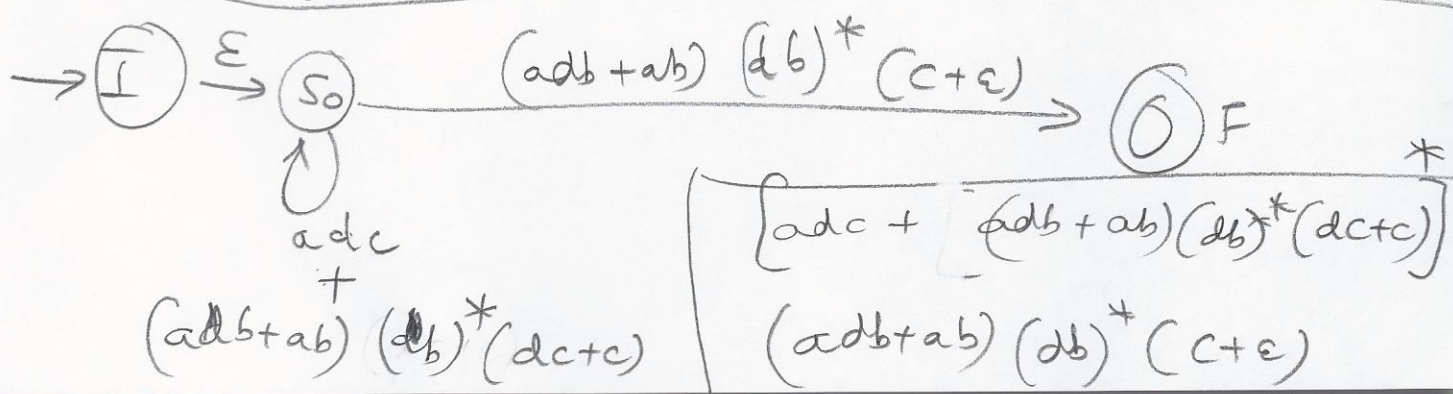 I ε S0 (adb+ab) (db)* (c+ε) F
adc
+
(adb+ab) (db)* (dc+c)
[adc + (adb+ab)(db)*(dc+c)]*
(adb+ab) (db)* (c+ε)